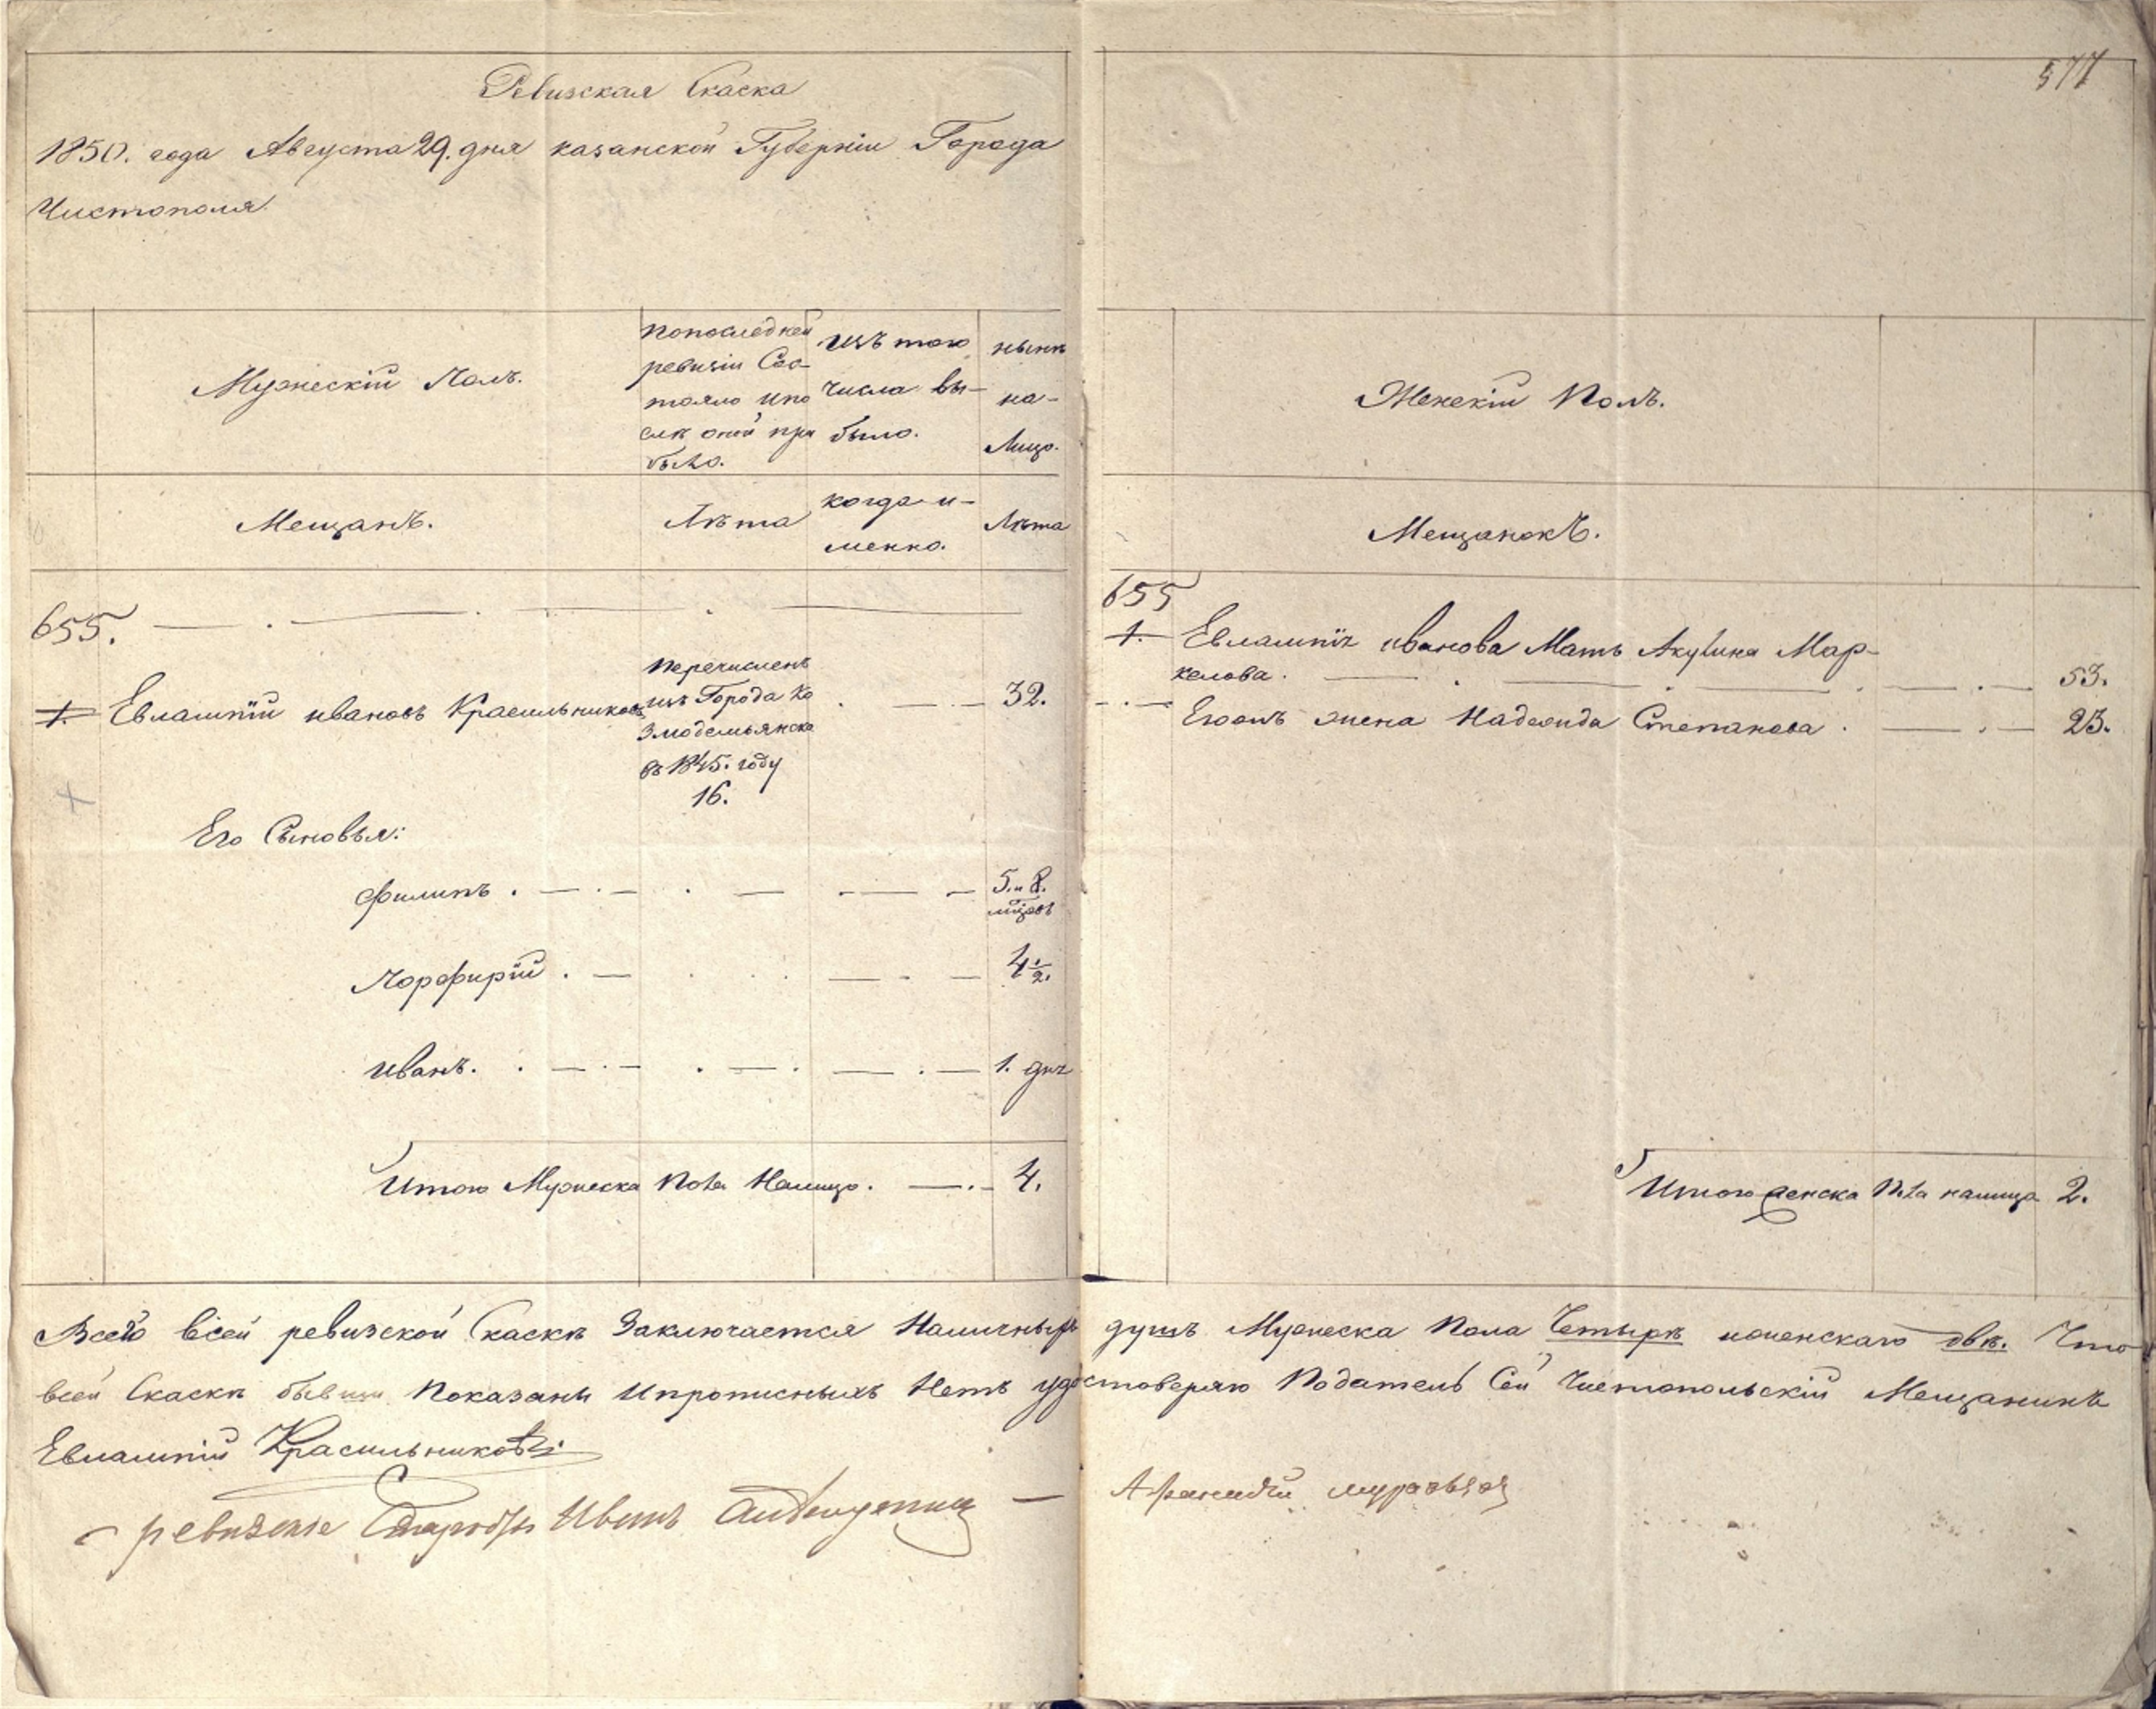 Ревизская Скаска
1850. года Августа 29. дня казанской Губернiи Города
Чистополя.
Мужескiй Полъ.
попоследней
ревизiи Сос-
тояло ипо
слѣ оной при
было.
изъ того
числа вы-
было.
нынѣ
на-
лицо.
Мещанъ.
Лѣта
когда и-
менно.
Лѣта
655.
1. Евлампiй ивановъ Красильниковъ
перечисленъ
изъ Города Ко
змодемьянска
въ 1845. году
16.
32.
Его Сыновья:
Филипъ.
5. и 8.
мѣцовъ
Порфирiй.
4 1/2.
иванъ.
1. дня
Итого Мужеска Пола Налицо. 4.
577
Женскiй Полъ.
Мещанокъ.
655
1. Евлампiя иванова Мать Акулина Мар-
келова. 53.
Егожъ жена Надежда Степанова. 23.
Итого женска Пола налицо 2.
Всего всей ревизской Скаскѣ Заключается Наличныхъ душъ Мужеска Пола Четырѣ иженскаго двѣ. Что
всей Скаскѣ бывши Показаны ипрописныхъ Нетъ удостоверяю Податель Сей Чистопольскiй Мещанинъ
Евлампiй Красильниковъ
ревизскiе Старосты Иванъ